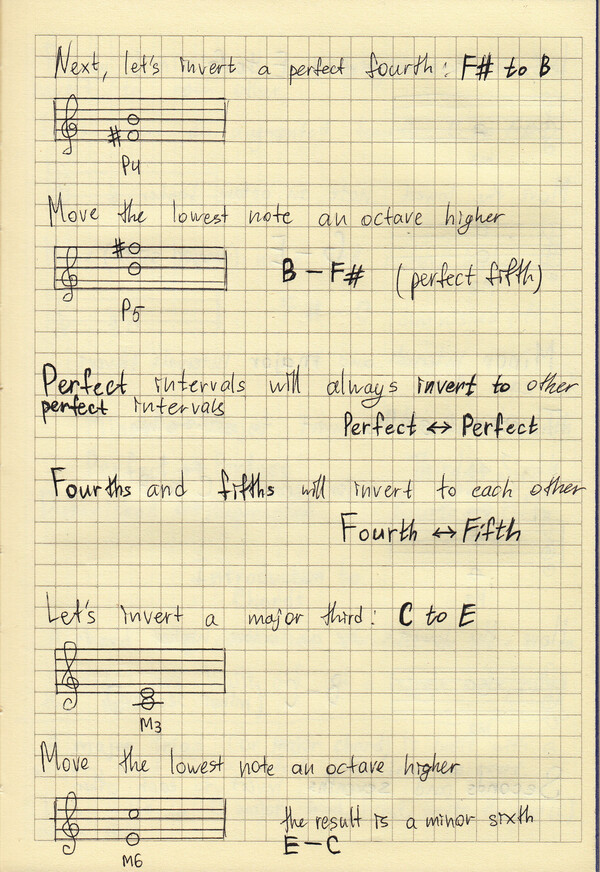 Next, let's invert a perfect fourth: F# to B
#
P4
Move the lowest note an octave higher
#
B – F# (perfect fifth)
P5
Perfect intervals will always invert to other
perfect intervals
Perfect ↔ Perfect
Fourths and fifths will invert to each other
Fourth ↔ Fifth
Let's invert a major third: C to E
M3
Move the lowest note an octave higher
the result is a minor sixth
E – C
M6